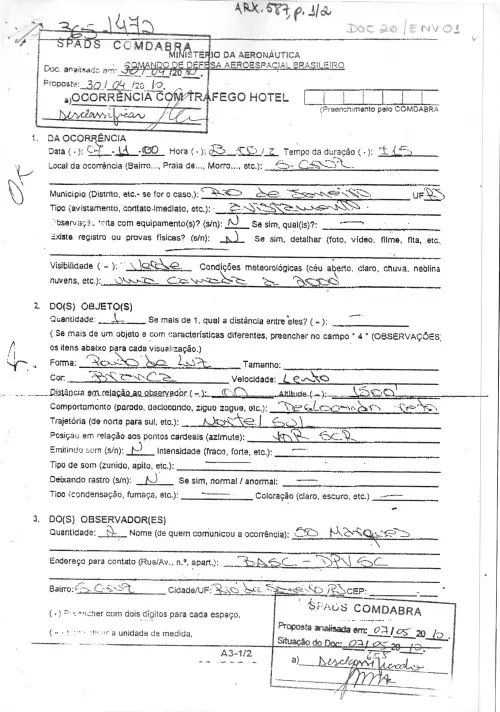 ARX.587, p. 1/2
365/1472
DOC 20 / ENV 01
SPADS COMDABRA
MINISTÉRIO DA AERONÁUTICA
COMANDO DE DEFESA AEROESPACIAL BRASILEIRO
Doc. analisado em: 30/04/2010
Proposta: 30/04/2010
a) OCORRÊNCIA COM TRÁFEGO HOTEL
(Preenchimento pelo COMDABRA
Desclassificar
OK
1. DA OCORRÊNCIA
Data (-): 07.11.00 Hora (-): 23:00/2 Tempo da duração (-): 115
Local da ocorrência (Bairro..., Praia de..., Morro..., etc.):
Município (Distrito, etc.- se for o caso.): Rio de Janeiro UF RJ
Tipo (avistamento, contato-imediato, etc.): avistamento
Observação feita com equipamento(s)? (s/n): N Se sim, qual(is)?:
Existe registro ou provas físicas? (s/n): N Se sim, detalhar (foto, vídeo, filme, fita, etc.
Visibilidade ( - ): Condições meteorológicas (céu aberto, claro, chuva, neblina
nuvens, etc.): uma camada a 2000'
2. DO(S) OBJETO(S)
Quantidade: 1 Se mais de 1, qual a distância entre eles? ( - ):
( Se mais de um objeto e com características diferentes, preencher no campo " 4 " (OBSERVAÇÕES,
os itens abaixo para cada visualização.)
Forma: Ponto de Luz Tamanho:
Cor: Branca Velocidade: Lento
Distância em relação ao observador ( - ): Altitude ( - ): 1500'
Comportamento (parado, deslocando, ziguezague, etc.): Deslocando reto
Trajetória (de norte para sul, etc.): Norte / Sul
Posição em relação aos pontos cardeais (azimute):
Emitindo som (s/n): N Intensidade (fraco, forte, etc.):
Tipo de som (zunido, apito, etc.):
Deixando rastro (s/n): N Se sim, normal / anormal:
Tipo (condensação, fumaça, etc.): Coloração (claro, escuro, etc.)
3. DO(S) OBSERVADOR(ES)
Quantidade: Nome (de quem comunicou a ocorrência): SO Marques
Endereço para contato (Rua/Av., n.º, apart.): BASC - DPV SC
Bairro: Cidade/UF: Rio de Janeiro RJ CEP:
( - ) Preencher com dois dígitos para cada espaço.
a unidade de medida.
A3-1/2
SPADS COMDABRA
Proposta analisada em: 07/05/2010.
Situação do Doc: 07/05/2010.
a) Desclassificado